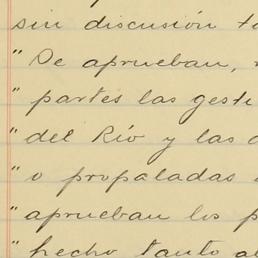 sin discusión
"De aprueban,
"partes las gesti
"del Río y las
"o propaladas
"aprueban los p
"hecho tanto al